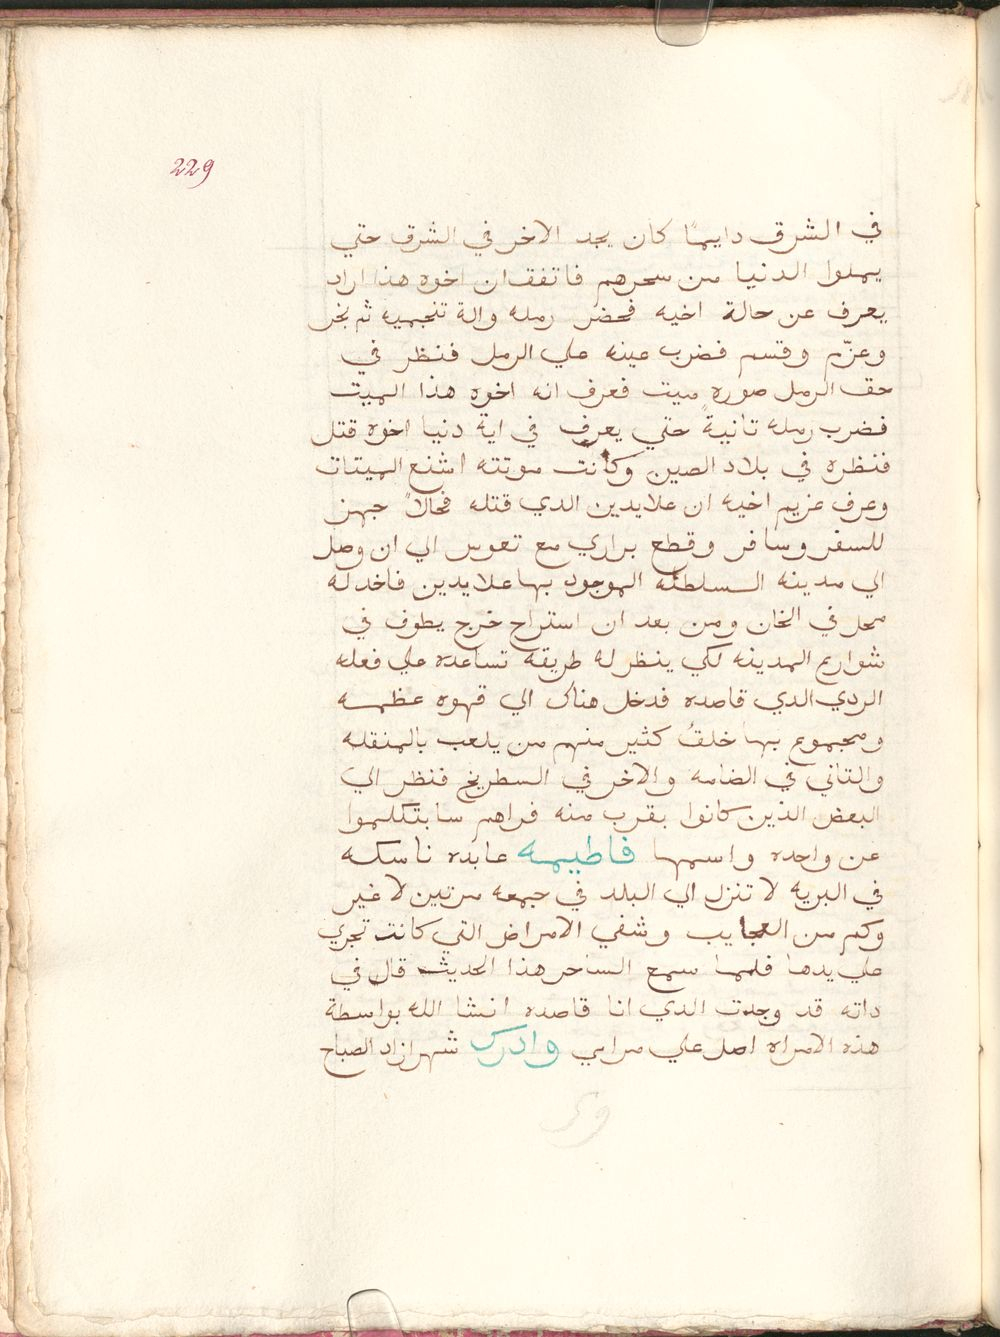 229
في الشرق دايمًا كان يجد الاخر في الشرق حتي
يملوا الدنيا من سحرهم فاتفق ان اخوه هذا اراد
يعرف عن حالة اخيه فحضر رمله والة تنجميه ثم بخر
وعزّم وقسم فضرب عينه علي الرمل فنظر في
حق الرمل صوره ميت فعرف انه اخوه هذا الميت
فضرب رمله تانيةً حتي يعرف في اية دنيا اخوه قتل
فنظره في بلاد الصين وكانت موتته اشنع الميتات
وعرف عزيم اخيه ان علايدين الدي قتله فحالاً جهز
للسفر وسافر وقطع براري مع تعوس الي ان وصل
الي مدينه السلطنه الموجود بها علايدين فاخد له
محل في الخان ومن بعد ان استراح خرج يطوف في
شواريع المدينه لكي ينظر له طريقه تساعده علي فعله
الردي الدي قاصده فدخل هناك الي قهوه عظمه
ومجموع بها خلقٌ كثير منهم من يلعب بالمنقله
والتاني في الضامه والاخر في السطرنج فنظر الي
البعض الذين كانوا بقرب منه فراهم سا بتكلموا
عن واحده واسمها فاطيمه عابده ناسكه
في البريه لا تنزل الي البلد في جمعه مرتين لا غير
وكم من العجايب وشفي الامراض التي كانت تجري
علي يدها فلما سمع الساحر هذا الحديث قال في
داته قد وجدت الدي انا قاصده انشا الله بواسطة
هذه الامراه اصل علي مرامي وادرك شهرازاد الصباح